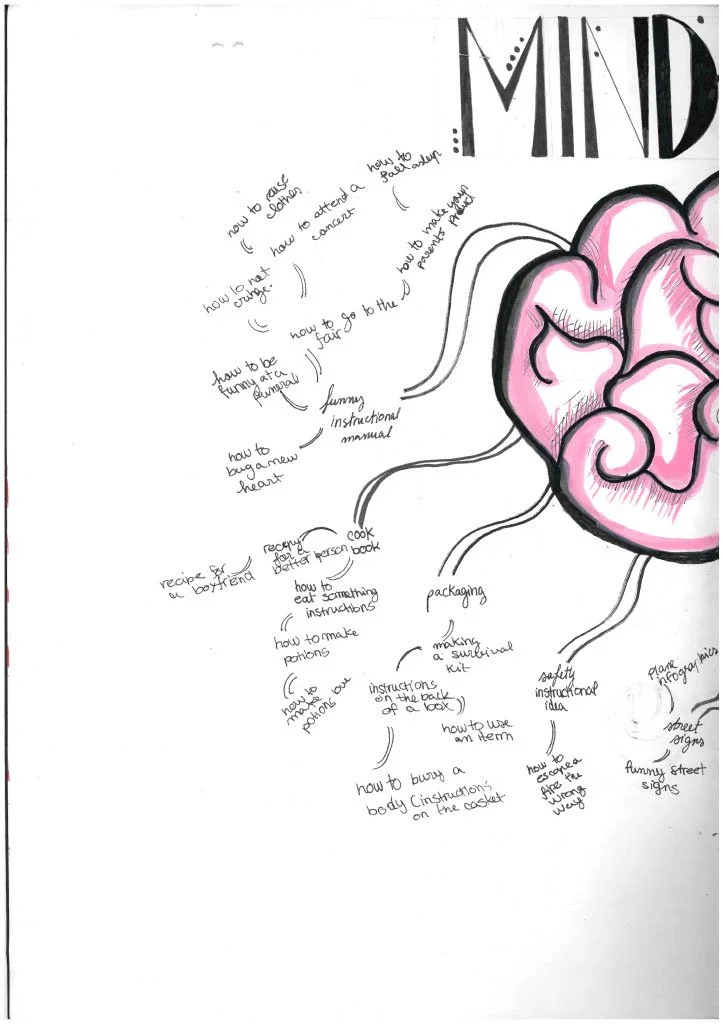 MIND
how to
fall asleep
how to reuse
clothes
how to attend a
concert
how to make your
parents proud
how to not
cringe.
how to go to the
fair
how to be
funny at a
funeral
funny
instructional
manual
how to
bug a new
heart
cook
book
recepy
for a
better person
recipe for
a boyfriend
how to
eat something
instructions
how to make
potions
how to
make
potions
packaging
making
a survival
kit
instructions
on the back
of a box
how to use
an item
how to bury a
body (instructions
on the casket
safety
instructional
idea
how to
escape a
fire the
wrong
way
plane
infographics
street
signs
funny street
signs